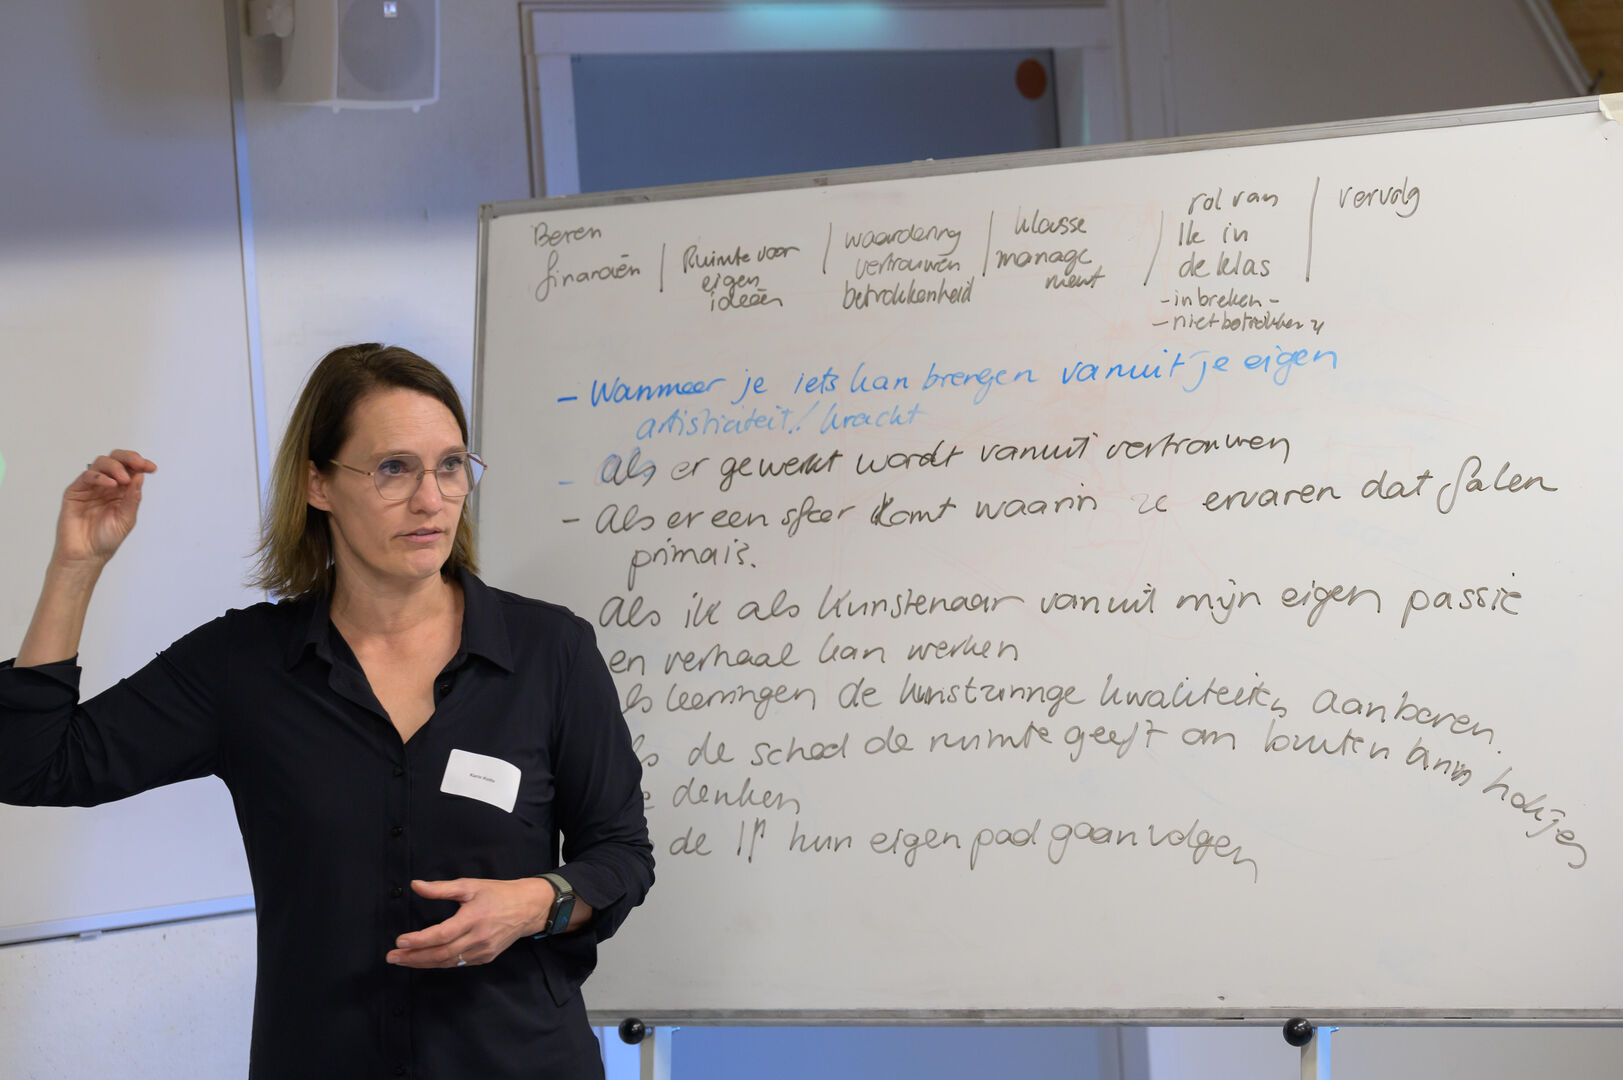 Beren
financiën
Ruimte voor
eigen
ideeën
waardering
vertrouwen
betrokkenheid
klasse
manage
ment
rol van
Ik in
de klas
- inbreken -
- niet betrokken zy
vervolg
- Wanneer je iets kan brengen vanuit je eigen
artisticiteit / kracht
- Als er gewerkt wordt vanuit vertrouwen
- Als er een sfeer komt waarin ze ervaren dat falen
prima is.
Als ik als kunstenaar vanuit mijn eigen passie
en verhaal kan werken
ls leerlingen de kunstzinnige kwaliteiten aanboren.
ls de school de ruimte geeft om buiten hokjes
e denken
de lln hun eigen pad gaan volgen